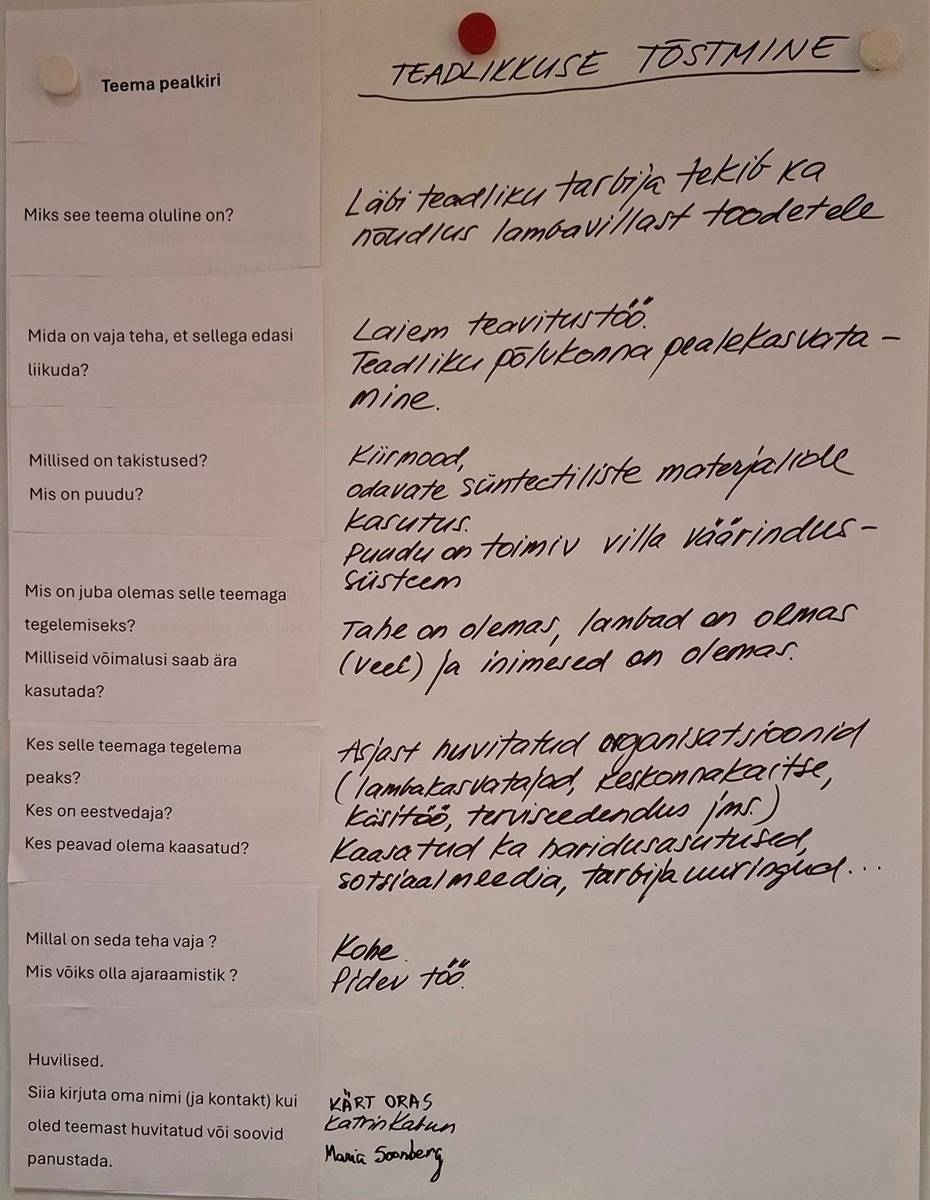 Teema pealkiri
TEADLIKKUSE TÕSTMINE
Miks see teema oluline on?
Läbi teadliku tarbija tekib ka
nõudlus lambavillast toodetele
Mida on vaja teha, et sellega edasi
liikuda?
Laiem teavitustöö.
Teadliku põlvkonna pealekasvata-
mine.
Millised on takistused?
Mis on puudu?
Kiirmood,
odavate süntectiliste materjalide
kasutus.
Puudu on toimiv villa väärindus-
süsteem
Mis on juba olemas selle teemaga
tegelemiseks?
Milliseid võimalusi saab ära
kasutada?
Tahe on olemas, lambad on olemas
(veel) ja inimesed on olemas.
Kes selle teemaga tegelema
peaks?
Kes on eestvedaja?
Kes peavad olema kaasatud?
Asjast huvitatud organisatsioonid
(lambakasvatajad, keskonnakaitse,
käsitöö, terviseedendus jms.)
Kaasatud ka haridusasutused,
sotsiaalmeedia, tarbijauuringud...
Millal on seda teha vaja ?
Mis võiks olla ajaraamistik ?
Kohe.
Pidev töö.
Huvilised.
Siia kirjuta oma nimi (ja kontakt) kui
oled teemast huvitatud või soovid
panustada.
KÄRT ORAS
Katrin
Maria Soonberg